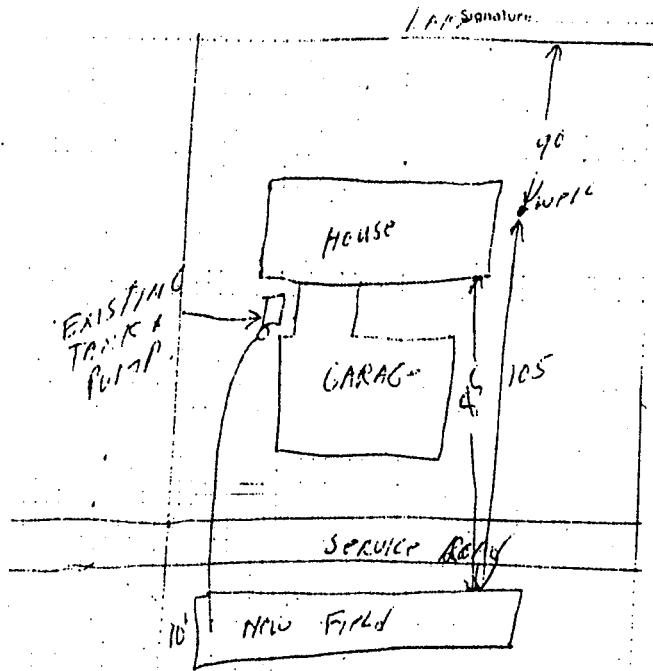 Signature
90
well
House
EXISTING
TANK &
PUMP
GARAGE
105
SERVICE Road
10'
New Field